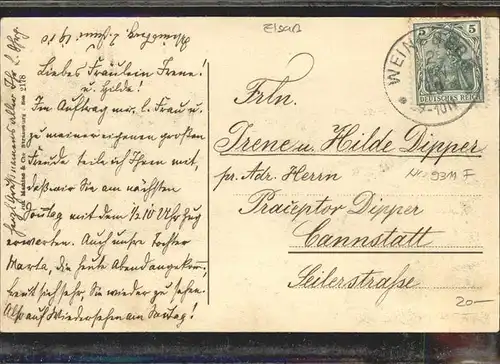 Elsaß
Weinsberg, 7. Juni 1910
Liebes Fräulein Irene!
u. Hilde!
Im Auftrag mr. l. Frau u.
zu meiner eigenen großen
Freude teile ich Ihnen mit,
daß wir Sie am nächsten
Sonntag mit dem ½ 10 Uhr Zug
erwarten. Auch unsre Tochter
Marta, die heute Abend angekom̅,
freut sich sehr, Sie wieder zu sehen.
Also auf Wiedersehen am Sonntag!
2178
WEINSBERG
9-10V
5 5
DEUTSCHES REICH
Frln.
Irene u. Hilde Dipper
pr. Adr. Herrn
Praeceptor Dipper
Cannstatt
Seilerstraße
No. 93M F
20—